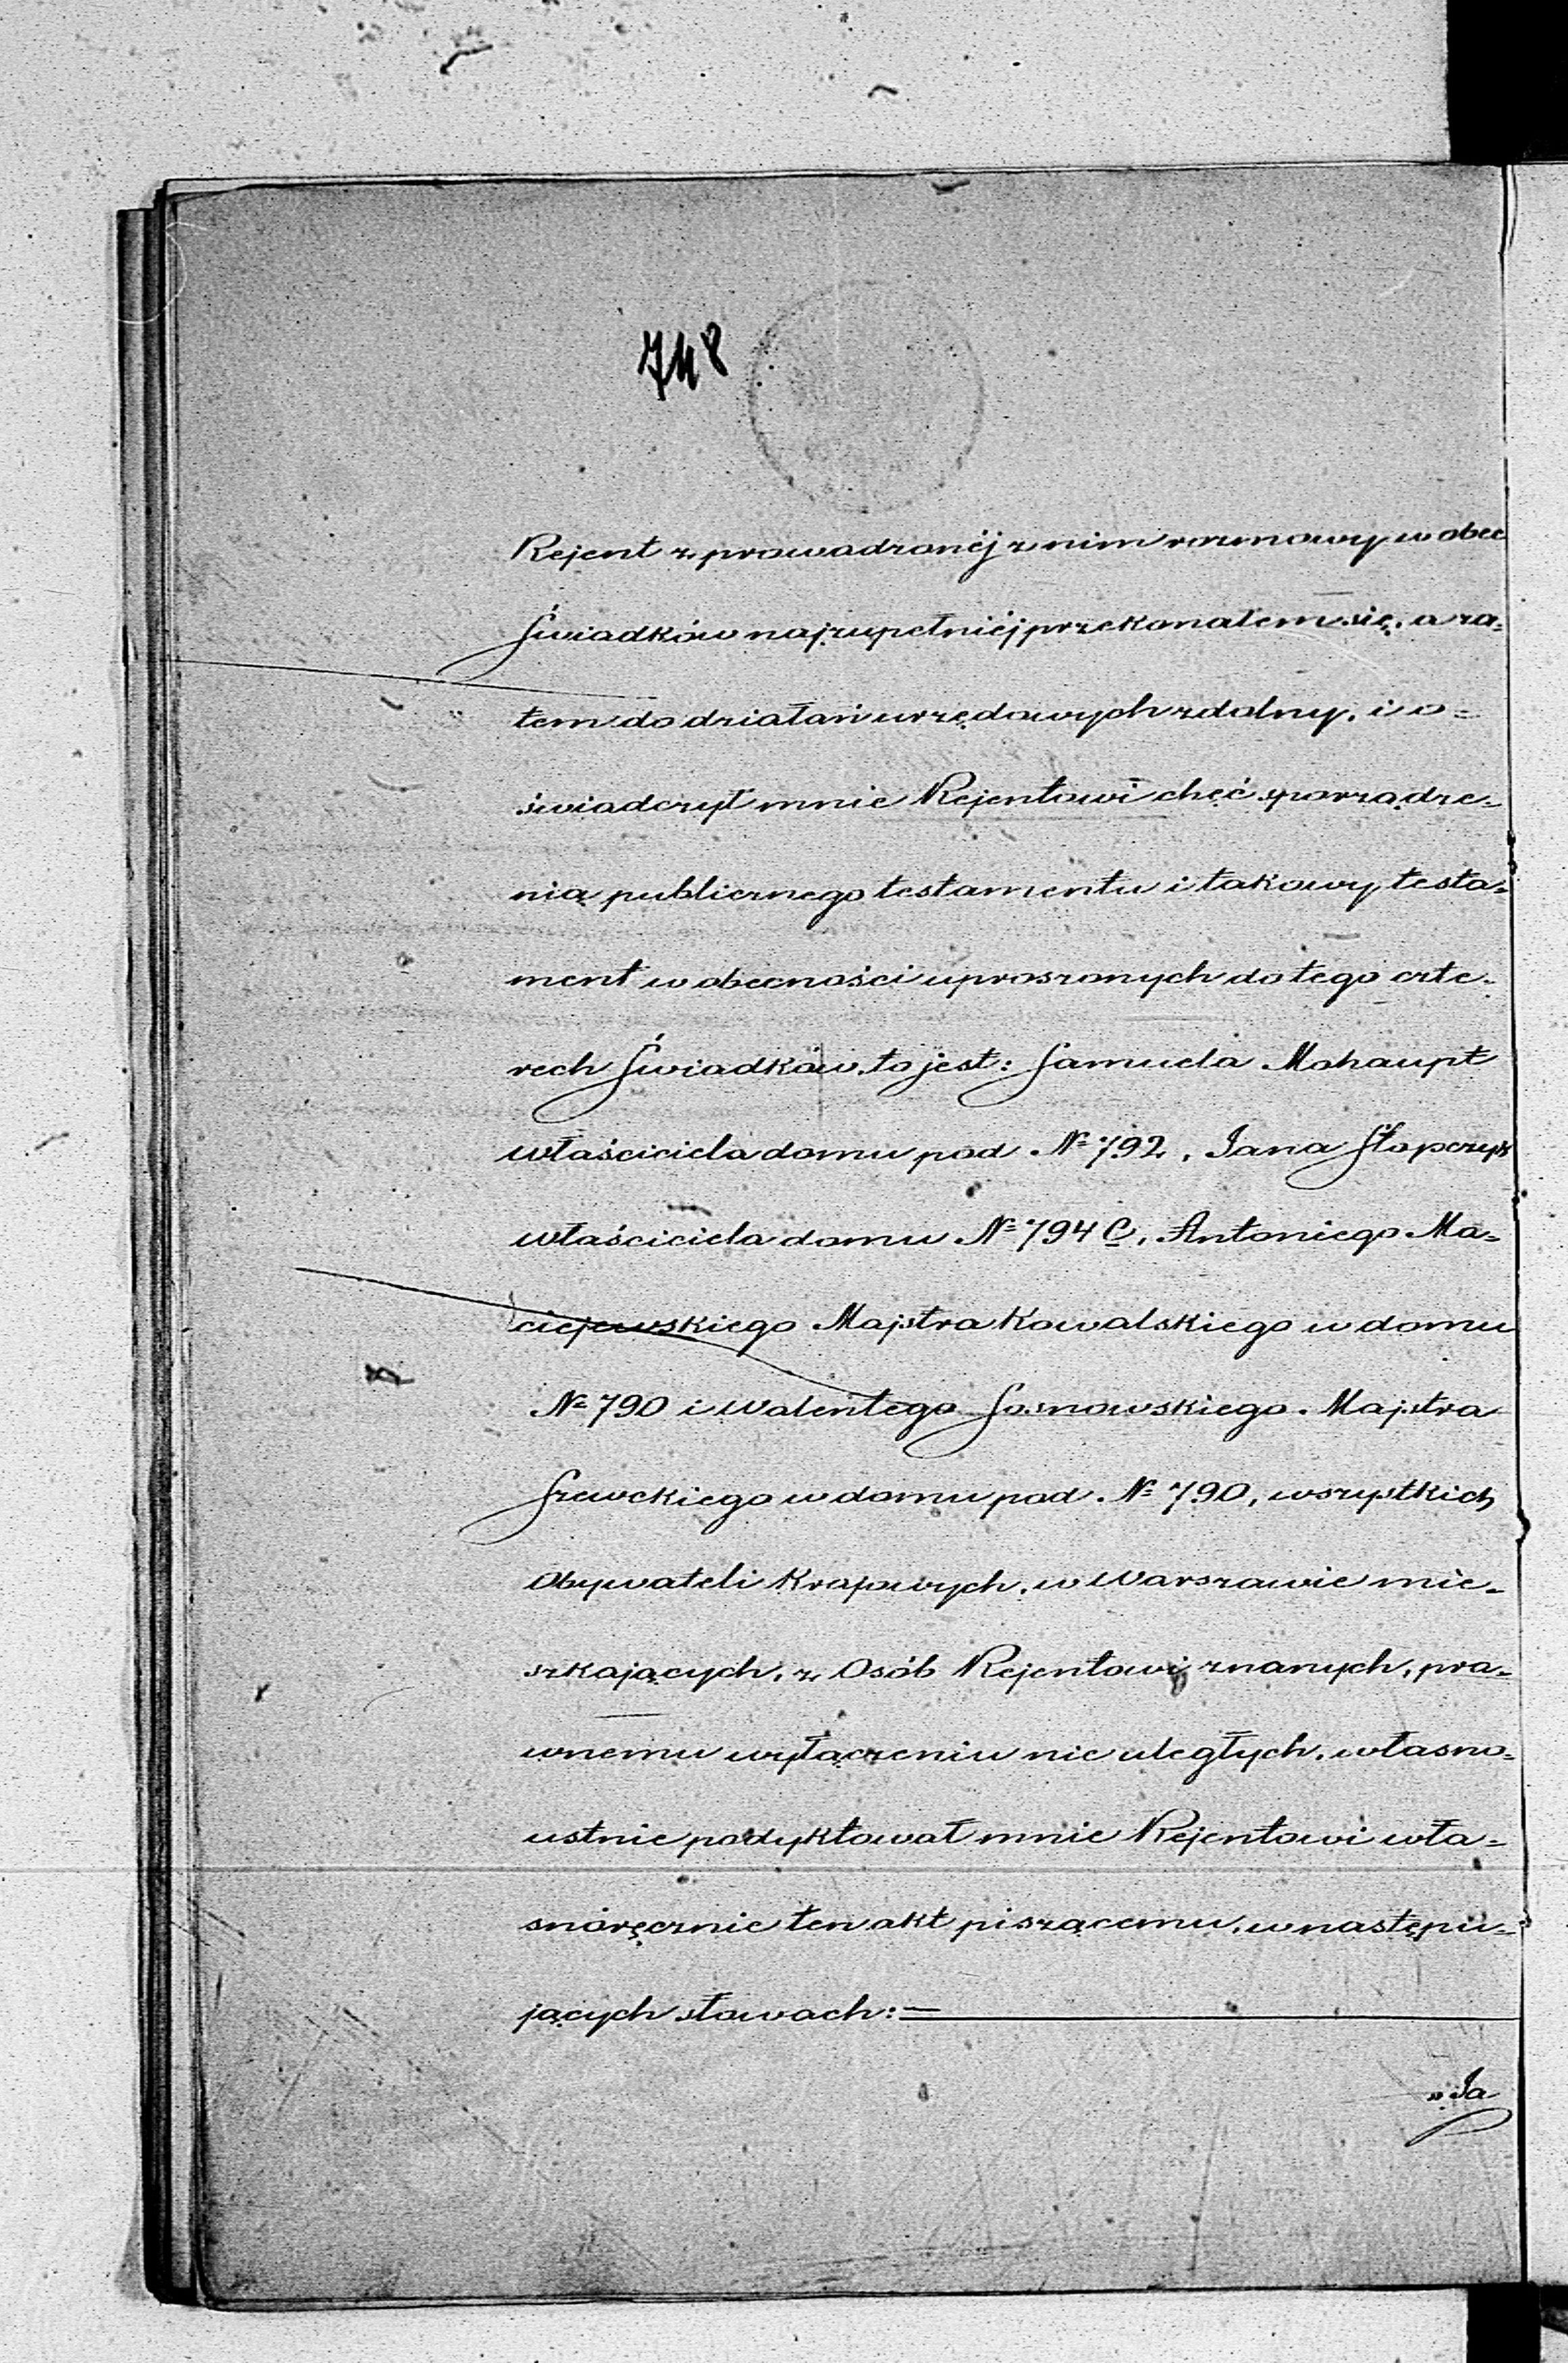 748
Rejent z prowadzonéj z nim rozmowy w obec
Świadków najzupełniéj przekonałem się, a za=
tem do działań urzędowych zdolny, i o=
świadczył mnie Rejentowi chęć sporządze=
nia publicznego testamentu i takowy testa=
ment w obecności uproszonych do tego czte=
rech Świadków, to jest: Samuela Mohaupt
właściciela domu pod № 792, Jana Słopczyk
właściciela domu № 794 C, Antoniego Ma=
ciejewskiego Majstra Kowalskiego w domu
№ 790 i Walentego Sosnowskiego Majstra
Szewckiego w domu pod № 790, wszystkich
Obywateli Krajowych, w Warszawie mie=
szkających, z Osób Rejentowi znanych, pra=
wnemu wyłączeniu nie uległych, własno=
ustnie podyktował mnie Rejentowi wła=
snoręcznie ten akt piszącemu, w następu=
jących słowach:=
„Ja